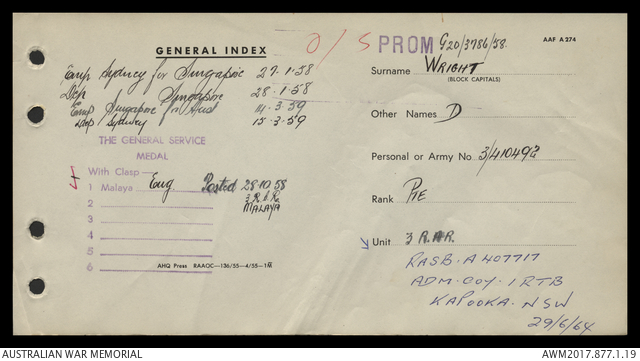 GENERAL INDEX
O/S PROM G20/3786/58. AAF A 274
Emp Sydney for Singapore 27.1.58
Dep Singapore 28.1.58
Emp Singapore for Aust 14.3.59
Dep Sydney 15.3.59
THE GENERAL SERVICE
MEDAL
With Clasp —
1 Malaya Eng Posted 28.10.58
3 R.A.R.
MALAYA
2
3
4
5
6
AHQ Press RAAOC—136/55—4/55—1M
Surname WRIGHT
(BLOCK CAPITALS)
Other Names D
Personal or Army No. 3/410492
Rank PTE
Unit 3 R.A.R.
RASB. A 407717
ADM. COY. 1 RTB
KAPOOKA. NSW
29/6/64
AUSTRALIAN WAR MEMORIAL
AWM2017.877.1.19